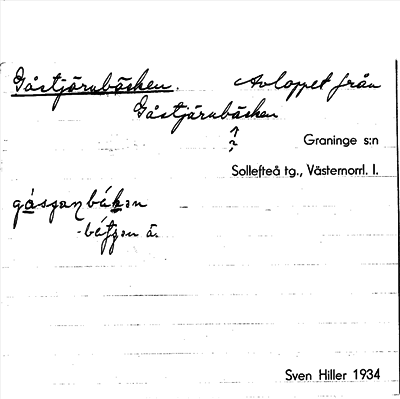 Gåstjärnbäcken. Avloppet från
Gåstjärnbäcken
?
Graninge s:n
Sollefteå tg., Västernorrl. l.
Sven Hiller 1934